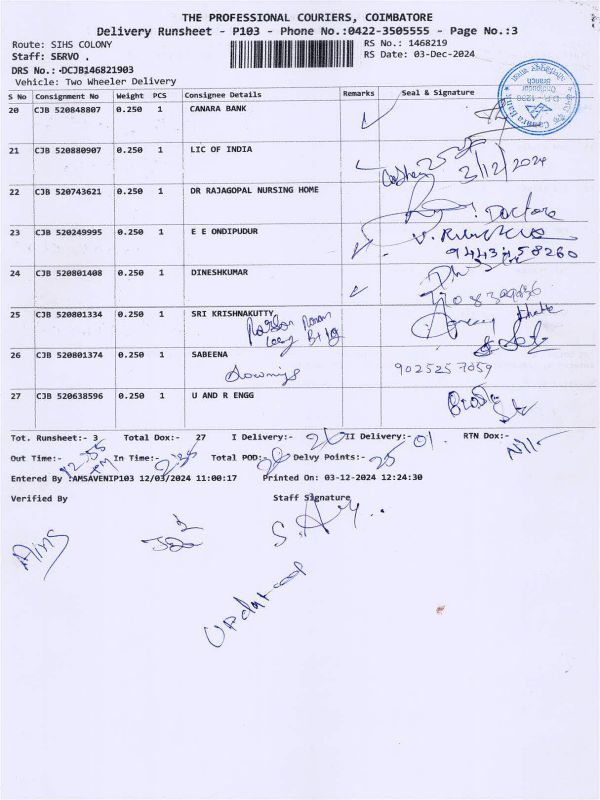 THE PROFESSIONAL COURIERS, COIMBATORE
Delivery Runsheet - P103 - Phone No.:0422-3505555 - Page No.:3
Route: SIHS COLONY
RS No.: 1468219
Staff: SERVO .
RS Date: 03-Dec-2024
DRS No.: DCJB146821903
Vehicle: Two Wheeler Delivery
S No Consignment No Weight PCS Consignee Details Remarks Seal & Signature
20 CJB 520848807 0.250 1 CANARA BANK
21 CJB 520880907 0.250 1 LIC OF INDIA
3/12/2024
22 CJB 520743621 0.250 1 DR RAJAGOPAL NURSING HOME
23 CJB 520249995 0.250 1 E E ONDIPUDUR
24 CJB 520801408 0.250 1 DINESHKUMAR
25 CJB 520801334 0.250 1 SRI KRISHNAKUTTY
26 CJB 520801374 0.250 1 SABEENA
9025257059
27 CJB 520638596 0.250 1 U AND R ENGG
Tot. Runsheet:- 3 Total Dox:- 27 I Delivery:- 26 II Delivery:- 01. RTN Dox:- Nil
Out Time:- 12.55 PM In Time:- Total POD:- 26 Delvy Points:- 25
Entered By :AMSAVENIP103 12/03/2024 11:00:17 Printed On: 03-12-2024 12:24:30
Verified By Staff Signature
Updated